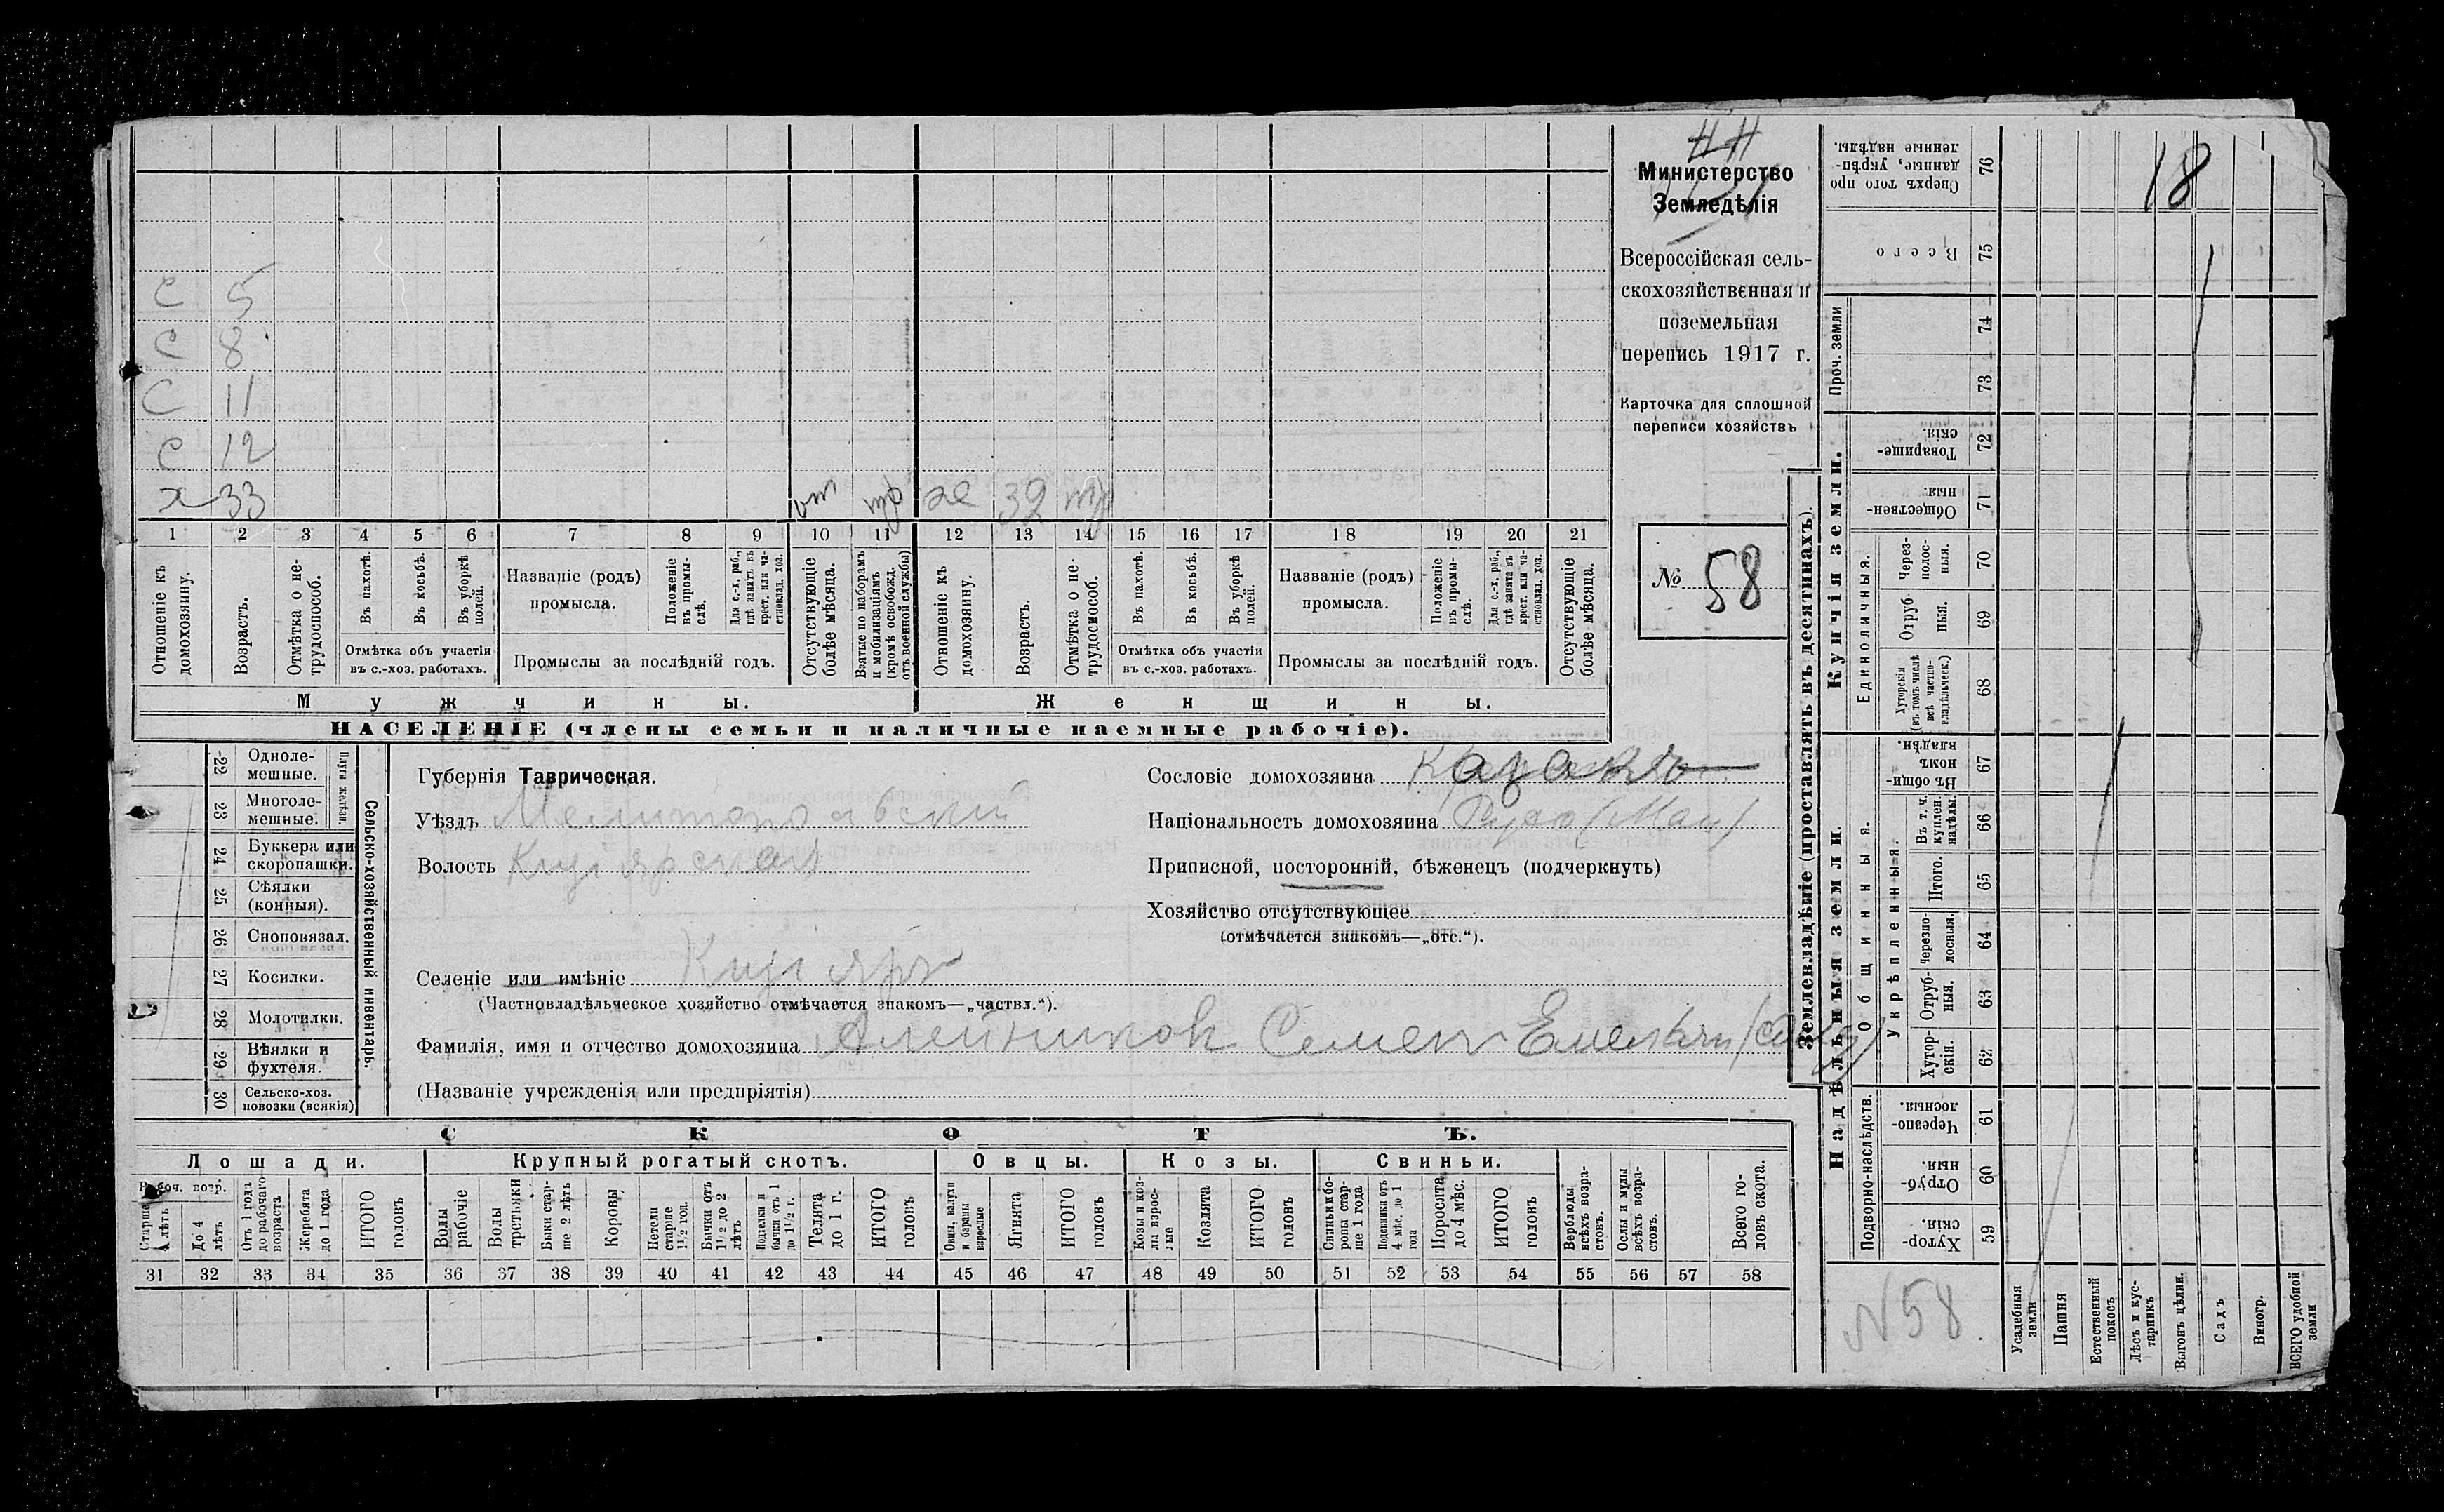 С 5
С 8
С 11
С 12
х 33 от мр же 32 мр
1 2 3 4 5 6 7 8 9 10 11 12 13 14 15 16 17 18 19 20 21
Отношеніе къ домохозяину.
Возрастъ.
Отмѣтка о нетрудоспособ.
Въ пахотѣ.
Въ косьбѣ.
Въ уборкѣ полей.
Отмѣтка объ участіи
въ с.-хоз. работахъ.
Названіе (родъ)
промысла.
Положеніе въ промыслѣ.
Для с.-х. раб., гдѣ занятъ въ крест. или частновлад. хоз.
Промыслы за послѣдній годъ.
Отсутствующіе болѣе мѣсяца.
Взятые по наборамъ и мобилизаціямъ (кромѣ освобожд. отъ военной службы)
Отношеніе къ домохозяину.
Возрастъ.
Отмѣтка о нетрудоспособ.
Въ пахотѣ.
Въ косьбѣ.
Въ уборкѣ полей.
Отмѣтка объ участіи
въ с.-хоз. работахъ.
Названіе (родъ)
промысла.
Положеніе въ промыслѣ.
Для с.-х. раб., гдѣ занята въ крест. или частновлад. хоз.
Промыслы за послѣдній годъ.
Отсутствующіе болѣе мѣсяца.
Мужчины.
Женщины.
НАСЕЛЕНІЕ (члены семьи и наличные наемные рабочіе).
Министерство
Земледѣлія
Всероссійская сель-
скохозяйственная и
поземельная
перепись 1917 г.
Карточка для сплошной
переписи хозяйствъ
№ 58
22 Одноле-
мешные.
23 Многоле-
мешные.
Плуги желѣзн.
24 Буккера или
скоропашки.
25 Сѣялки
(конныя).
26 Сноповязал.
27 Косилки.
28 Молотилки.
29 Вѣялки и
фухтеля.
30 Сельско-хоз.
повозки (всякія)
Сельско-хозяйственный инвентарь.
Губернія Таврическая.
Уѣздъ Мелитопольскій
Волость Кизіярская
Селеніе или имѣніе Кизіяръ
(Частновладѣльческое хозяйство отмѣчается знакомъ—„частвл.“).
Фамилія, имя и отчество домохозяина Алейников Семен Емельян
(Названіе учрежденія или предпріятія)
Сословіе домохозяина
Національность домохозяина
Приписной, посторонній, бѣженецъ (подчеркнуть)
Хозяйство отсутствующее
(отмѣчается знакомъ—„отс.“).
СКОТЪ.
Лошади.
Крупный рогатый скотъ.
Овцы.
Козы.
Свиньи.
Рабоч. возр.
Старше 4 лѣтъ
До 4 лѣтъ
Отъ 1 года до рабочаго возраста
Жеребята до 1 года
ИТОГО головъ
Волы рабочіе
Волы третьяки
Быки старше 2 лѣтъ
Коровы
Нетели старше 1½ год.
Бычки отъ 1½ до 2 лѣтъ
Подтелки и бычки отъ 1 до 1½ г.
Телята до 1 г.
ИТОГО головъ
Овцы, валухи и бараны взрослые
Ягнята
ИТОГО головъ
Козы и козлы взрослые
Козлята
ИТОГО головъ
Свиньи и боровы старше 1 года
Подсвинки отъ 4 мѣс. до 1 года
Поросята до 4 мѣс.
ИТОГО головъ
Верблюды всѣхъ возрастовъ.
Ослы и мулы всѣхъ возрастовъ.
Всего головъ скота.
31 32 33 34 35 36 37 38 39 40 41 42 43 44 45 46 47 48 49 50 51 52 53 54 55 56 57 58
Землевладѣніе (проставлять въ десятинахъ).
Надѣльныя земли.
Купчія земли.
Проч. земли
Сверхъ того проданные, укрѣпленные надѣлы. 76
Всего 75
74
73
Товарищескія. 72
Общественныя. 71
Единоличныя.
Черезполосныя. 70
Отрубныя. 69
Хуторскія (въ томъ числѣ всѣ частновладѣльческ.) 68
Общинныя.
Въ общинномъ владѣн. 67
Укрѣпленныя.
Въ т. ч. куплен. надѣлы. 66
Итого. 65
Черезполосныя. 64
Отрубныя. 63
Хуторскія. 62
Подворно-наслѣдств.
Черезполосныя. 61
Отрубныя. 60
Хуторскія. 59
18
N 58.
Усадебныя земли
Пашня
Естественный покосъ
Лѣсъ и кустарникъ
Выгонъ цѣлин.
Садъ
Виногр.
ВСЕГО удобной земли